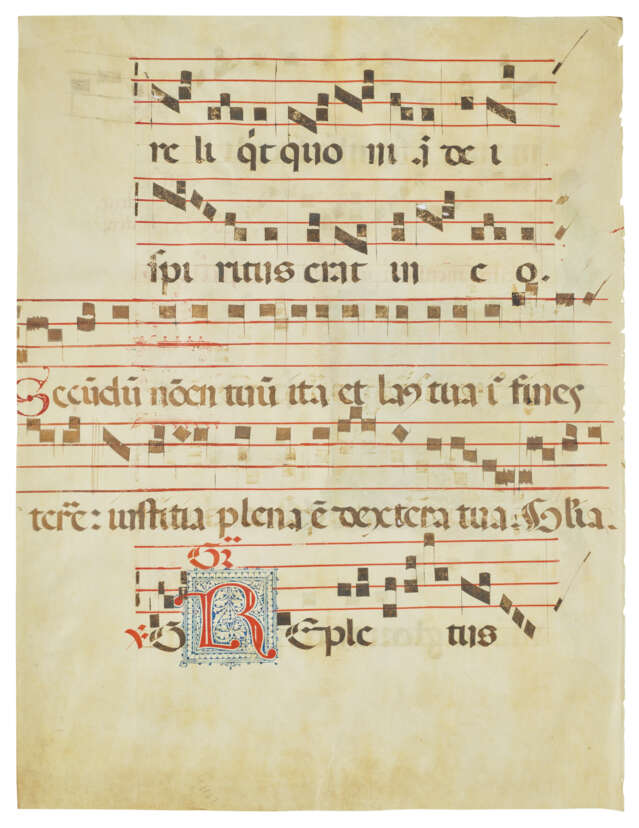 re li q̄t quo ni .ā de i
spi ritus erat in e o.
Secūdū nōen tuū ita et laꝰ tua ī fines
terre: iustitia plena ē dextera tua. Glīa.
Gr̄
G REple tus